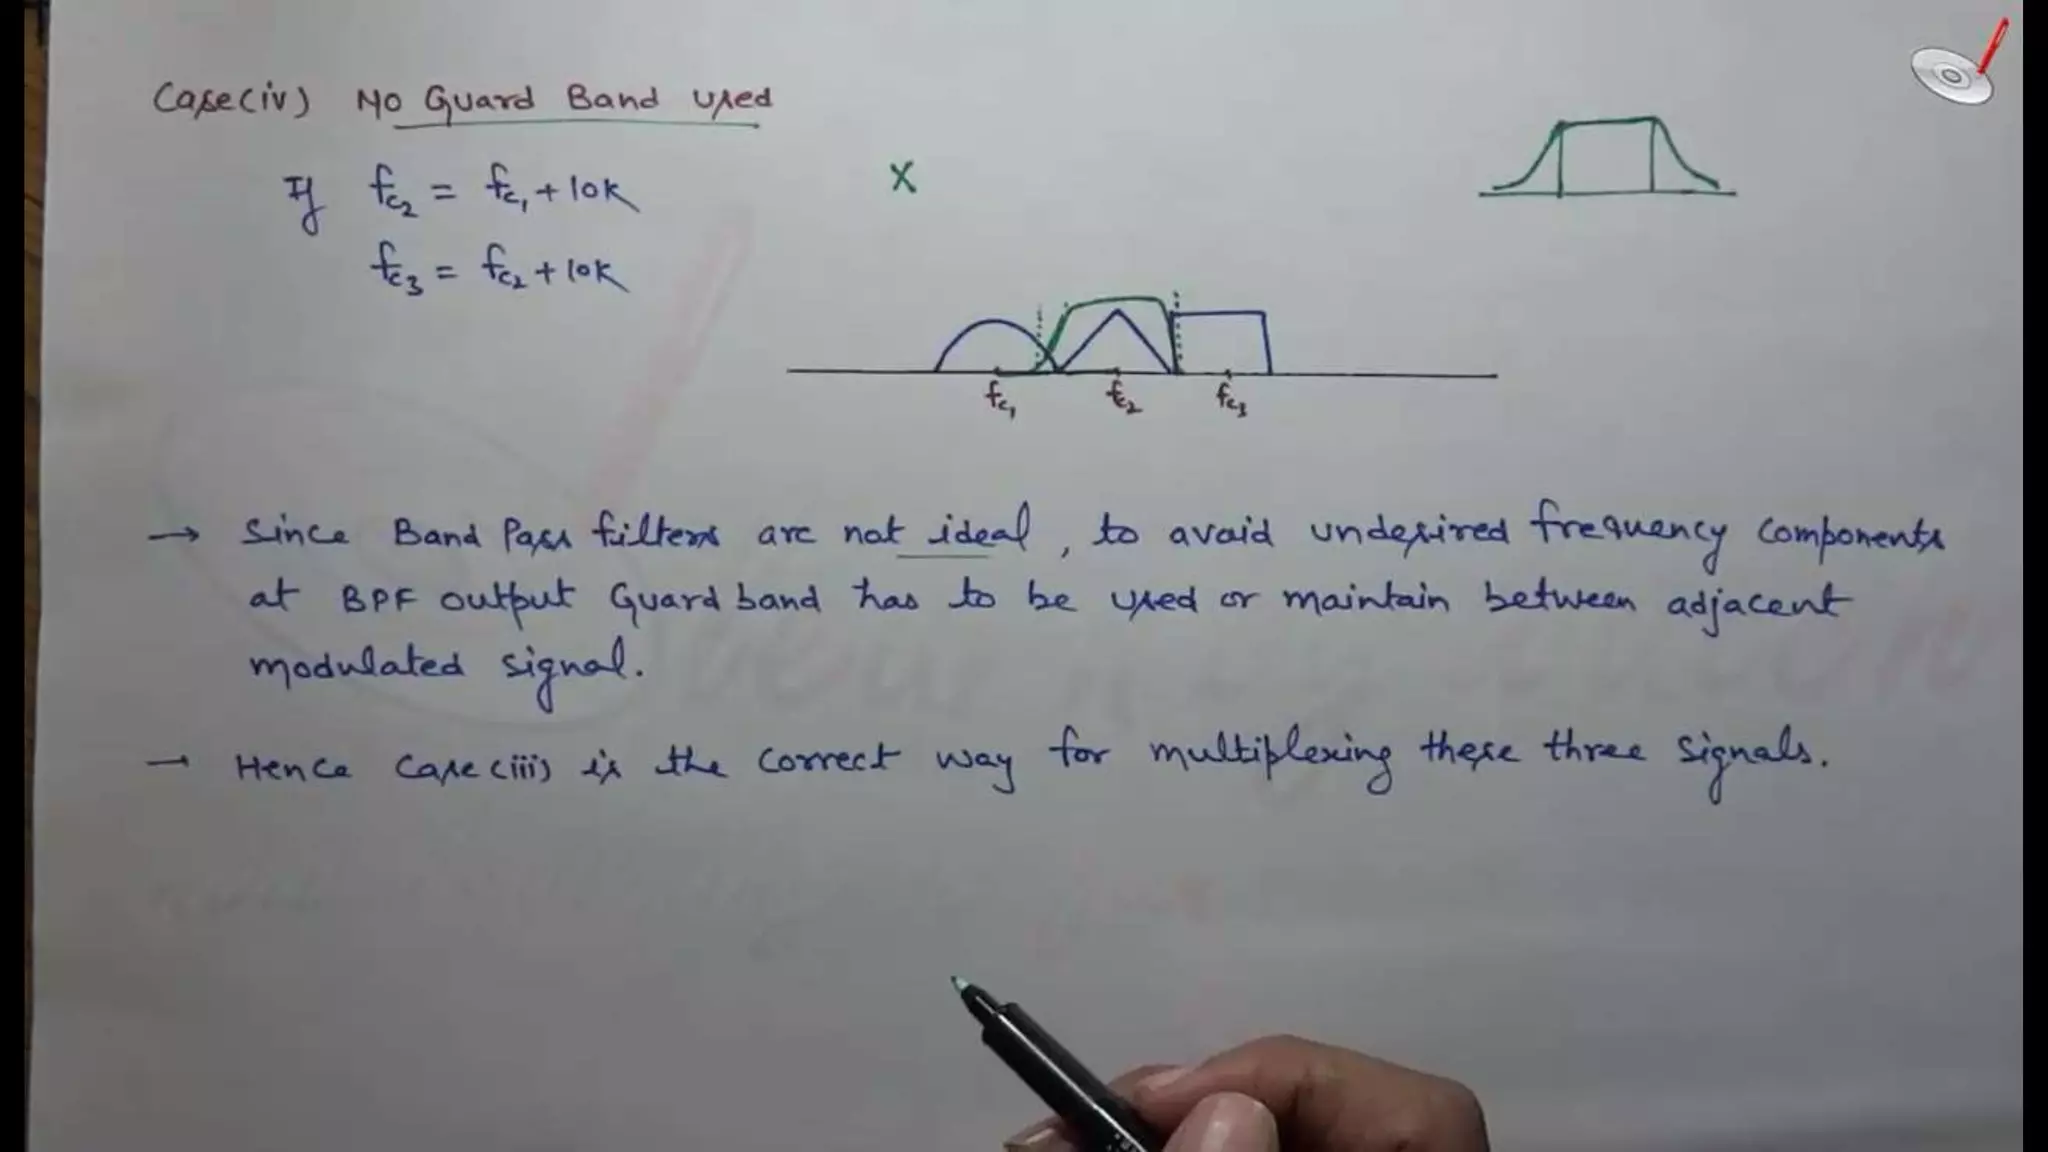 Case(iv) No Guard Band used
If fc2 = fc1 + 10K
fc3 = fc2 + 10K
X
fc1 fc2 fc3
→ Since Band Pass filters are not ideal, to avoid undesired frequency components
at BPF output Guard band has to be used or maintain between adjacent
modulated signal.
→ Hence case(iii) is the correct way for multiplexing these three signals.